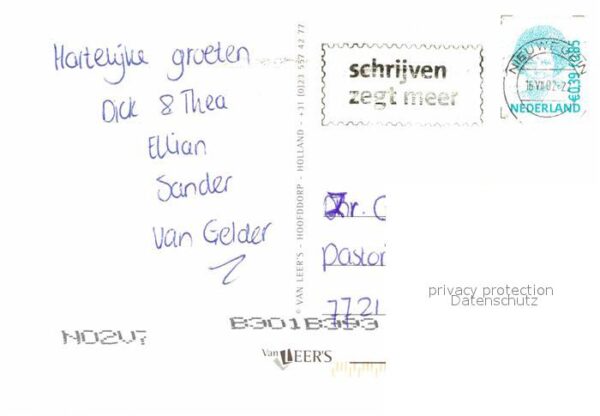 Hartelijke groeten
Dick & Thea
Ellian
Sander
van Gelder
schrijven
zegt meer
NIEUWEGEIN
NEDERLAND
€0,39 0,85
© VAN LEER'S - HOOFDDORP - HOLLAND - +31 (0)23 557 42 77
hr. C
Pastori
7721
privacy protection
Datenschutz
B301B393
Van LEER'S